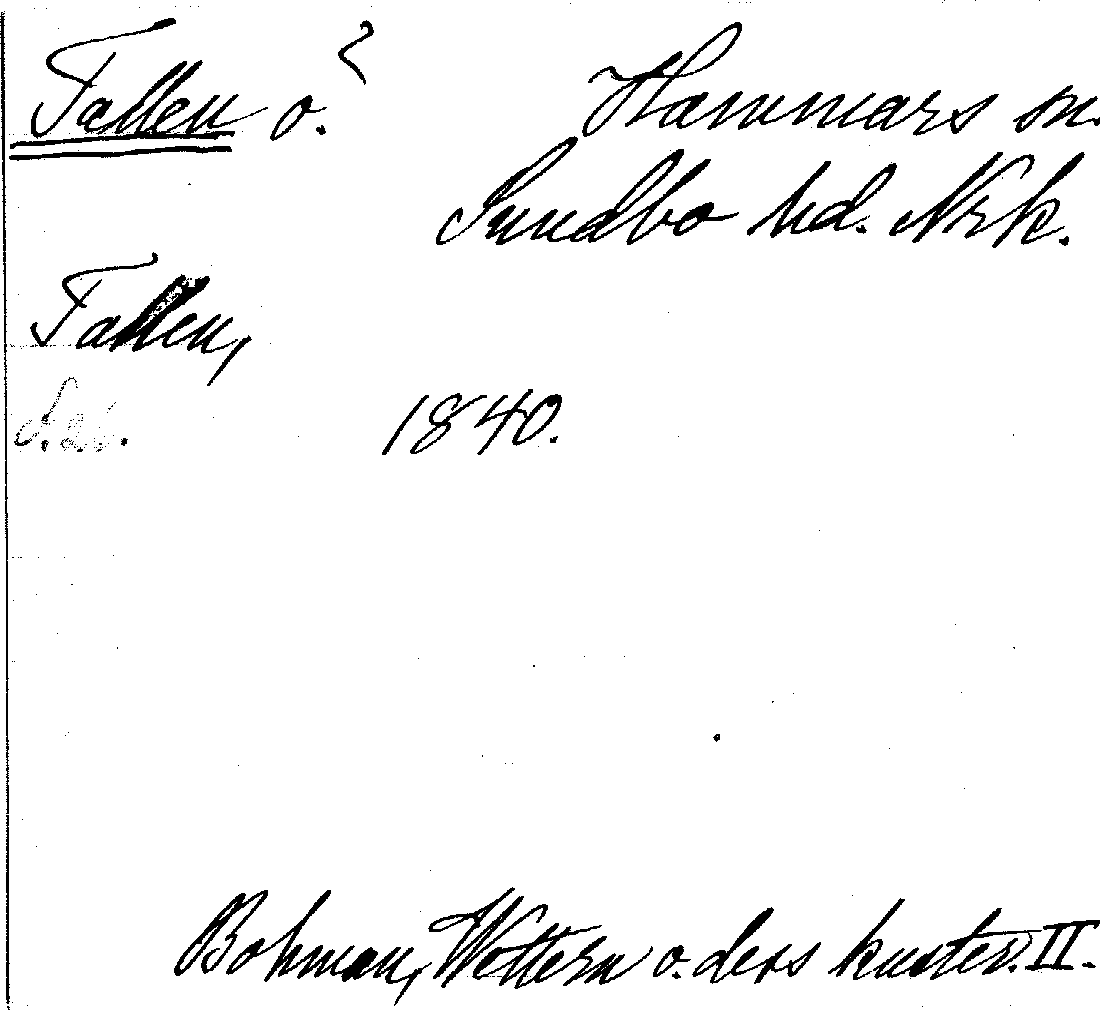 Fallen o. ?
Hammars sn.
Sundbo hd. Nrk.
Fallen,
S. 26. 1840.
Bohman, Wettern o. ders kuster. II.